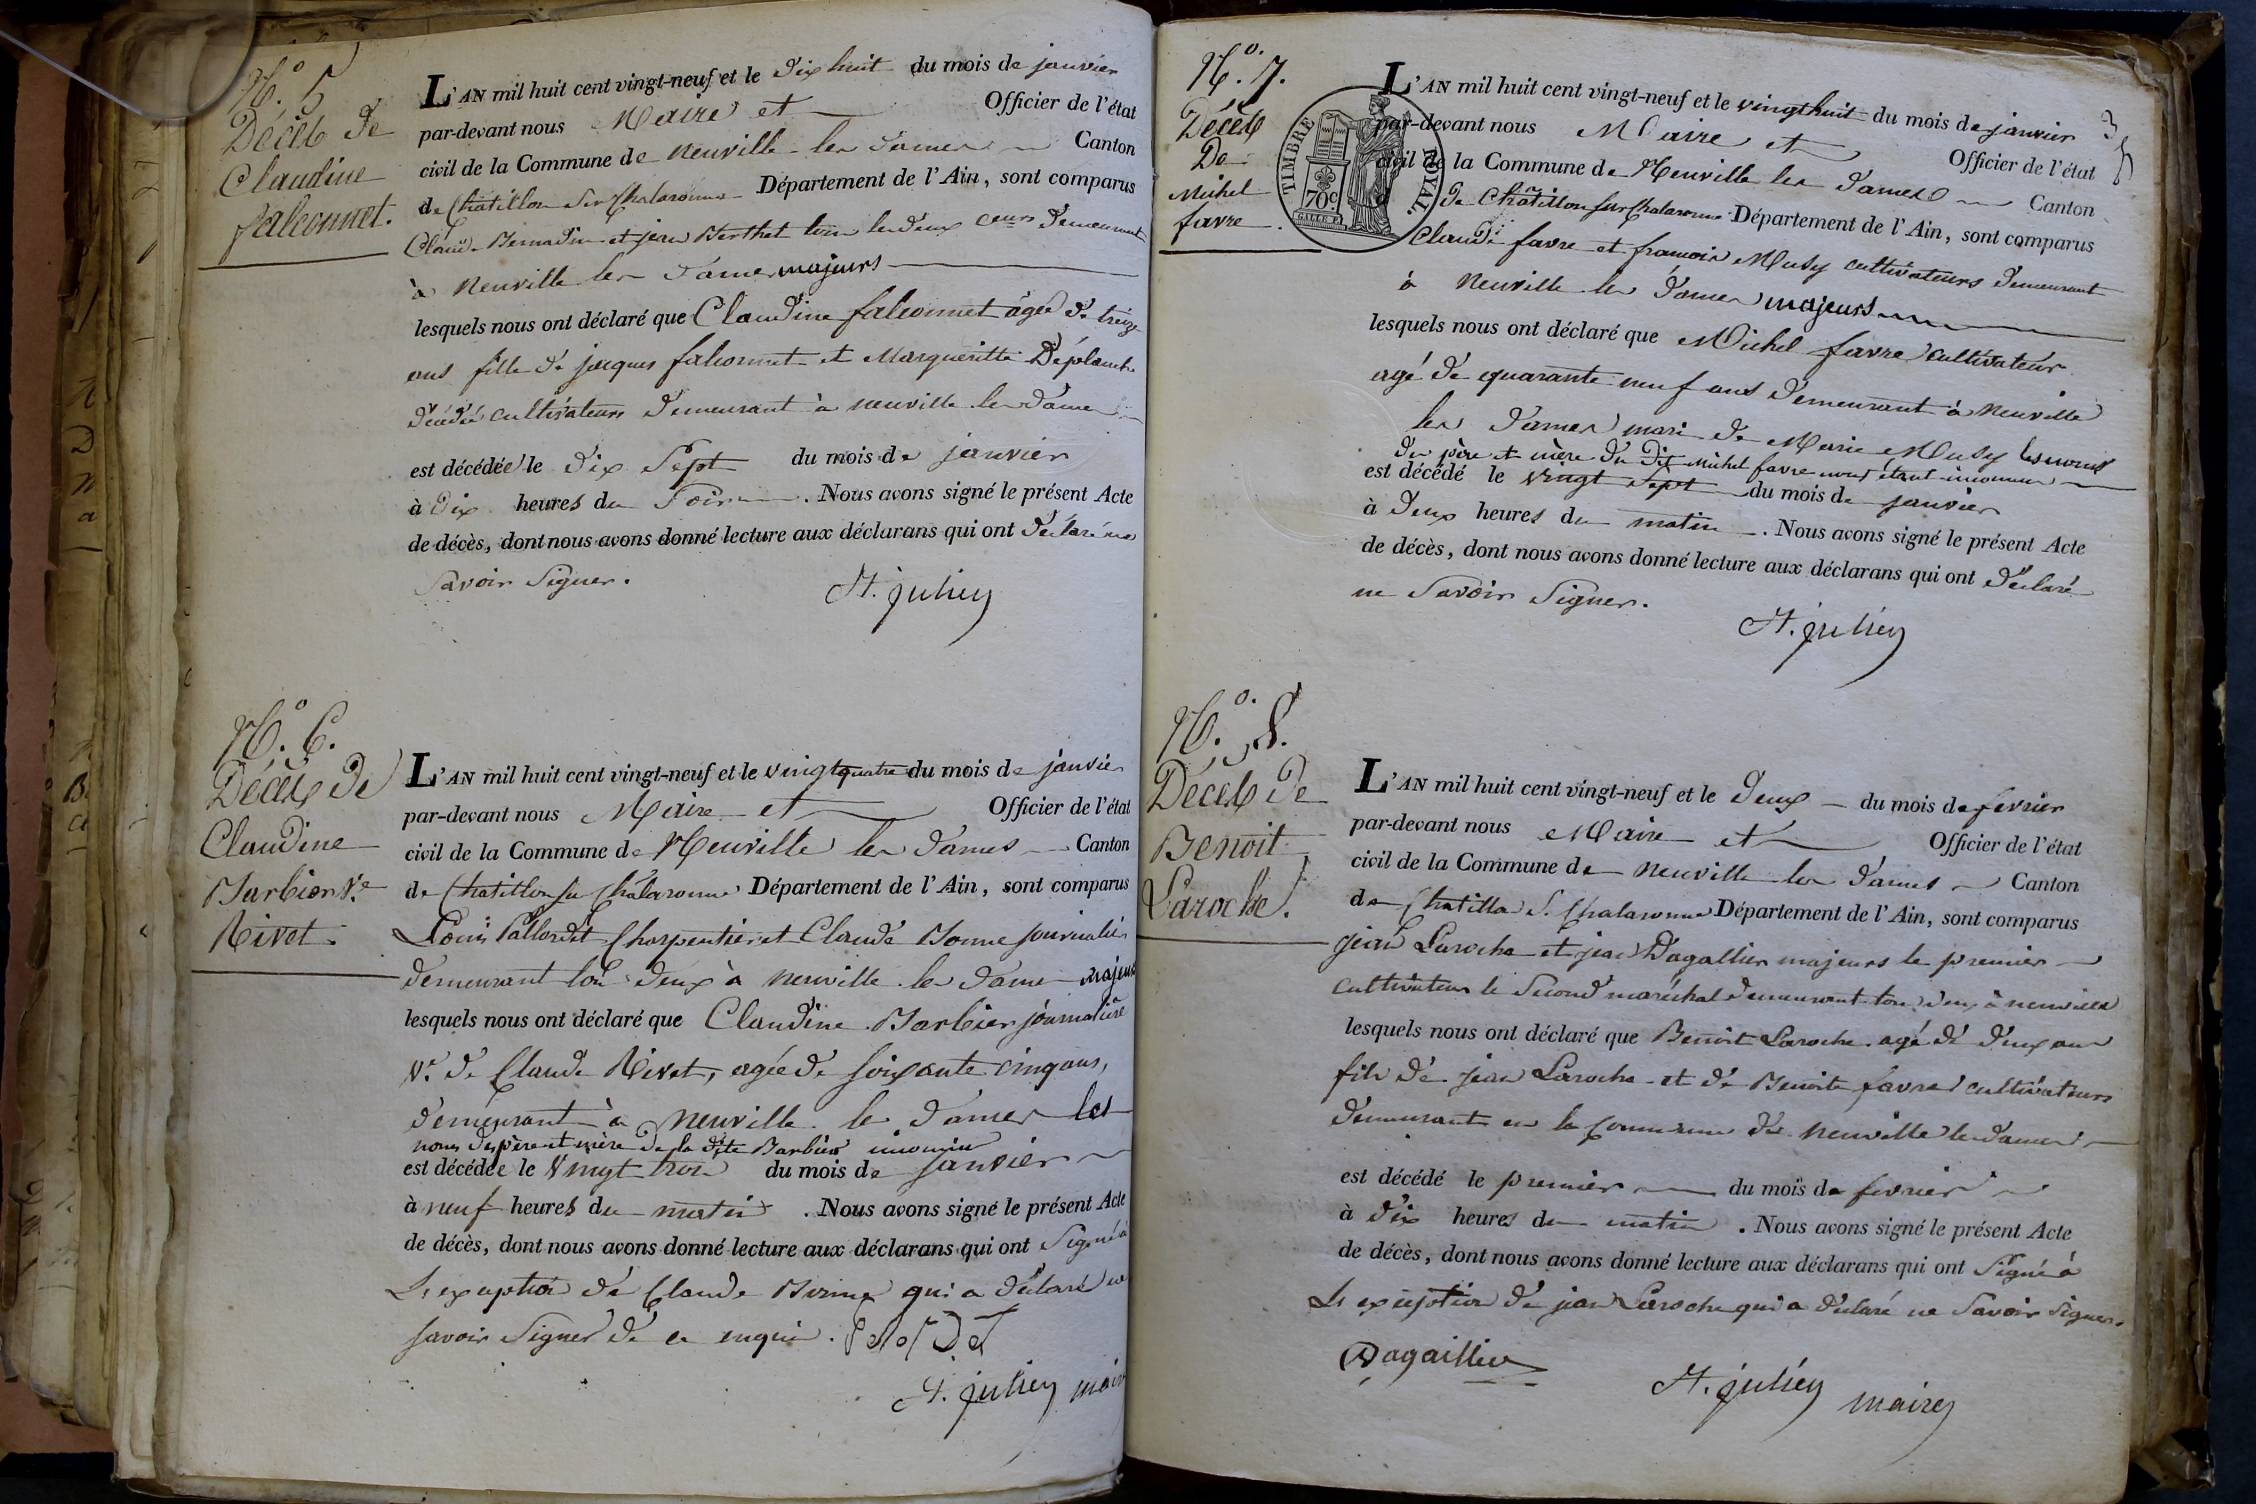 N.° 5
Décès de
Claudine
falconnet.
L'AN mil huit cent vingt-neuf et le dix huit du mois de janvier
par-devant nous Maire et Officier de l'état
civil de la Commune de neuville les Dames Canton
de Chatillon sur Chalaronne Département de l'Ain, sont comparus
Claude Bernadin et jean Berthet tous les deux demeurant
à neuville les Dames majeurs
lesquels nous ont déclaré que Claudine falconnet agée de treize
ans fille de jacques falconnet et Margueritte Déplanche
décédée cultivateurs demeurant à neuville les Dames
est décédée le dix Sept du mois de janvier
à Dix heures du Soir. Nous avons signé le présent Acte
de décès, dont nous avons donné lecture aux déclarans qui ont déclaré ne
Savoir Signer.
St. julien
N.° 6.
Décès de
Claudine
Barbier Ve
Rivet.
L'AN mil huit cent vingt-neuf et le vingt quatre du mois de janvier
par-devant nous Maire et Officier de l'état
civil de la Commune de Neuville les Dames Canton
de Chatillon sur Chalaronne Département de l'Ain, sont comparus
Louis Pallordet Charpentier et Claude Bonne journalier
demeurant tous deux à neuville les Dames majeurs
lesquels nous ont déclaré que Claudine Barbier journalière
Ve de Claude Rivet, agée de soixante cinq ans,
demeurant à neuville les Dames les
noms des père et mère de la dite Barbier inconnus
est décédée le vingt trois du mois de janvier
à neuf heures du matin. Nous avons signé le présent Acte
de décès, dont nous avons donné lecture aux déclarans qui ont Signé à
L'exception de Claude Bonne qui a déclaré ne
savoir Signer de ce enquis.
St. julien maire
N.° 7.
Décès
De
Michel
favre.
TIMBRE ROYAL.
70c
3
L'AN mil huit cent vingt-neuf et le vingt huit du mois de janvier
par-devant nous Maire et Officier de l'état
civil de la Commune de Neuville les Dames Canton
de Châtillon sur Chalaronne Département de l'Ain, sont comparus
Claude favre et francois Musy cultivateurs demeurant
à Neuville les Dames majeurs
lesquels nous ont déclaré que Michel favre cultivateur
agé de quarante neuf ans demeurant à Neuville
les Dames mari de Marie Musy les noms
des père et mère du Dit Michel favre nous étant inconnus
est décédé le vingt sept du mois de janvier
à deux heures du matin. Nous avons signé le présent Acte
de décès, dont nous avons donné lecture aux déclarans qui ont déclaré
ne Savoir Signer.
St. julien
N.° 8.
Décès de
Benoit
Laroche.
L'AN mil huit cent vingt-neuf et le deux du mois de fevrier
par-devant nous Maire et Officier de l'état
civil de la Commune de neuville les Dames Canton
de Chatillon S. Chalaronne Département de l'Ain, sont comparus
jean Laroche et jean Dagallier majeurs le premier
cultivateur le Second maréchal demeurant tous deux à neuville
lesquels nous ont déclaré que Benoit Laroche agé de deux ans
fils de jean Laroche et de Benoite favre cultivateurs
demeurant en la Commune de neuville les Dames
est décédé le premier du mois de fevrier
à dix heures du matin. Nous avons signé le présent Acte
de décès, dont nous avons donné lecture aux déclarans qui ont Signé à
L'exception de jean Laroche qui a déclaré ne Savoir Signer.
Dagaillier
St. julien maire